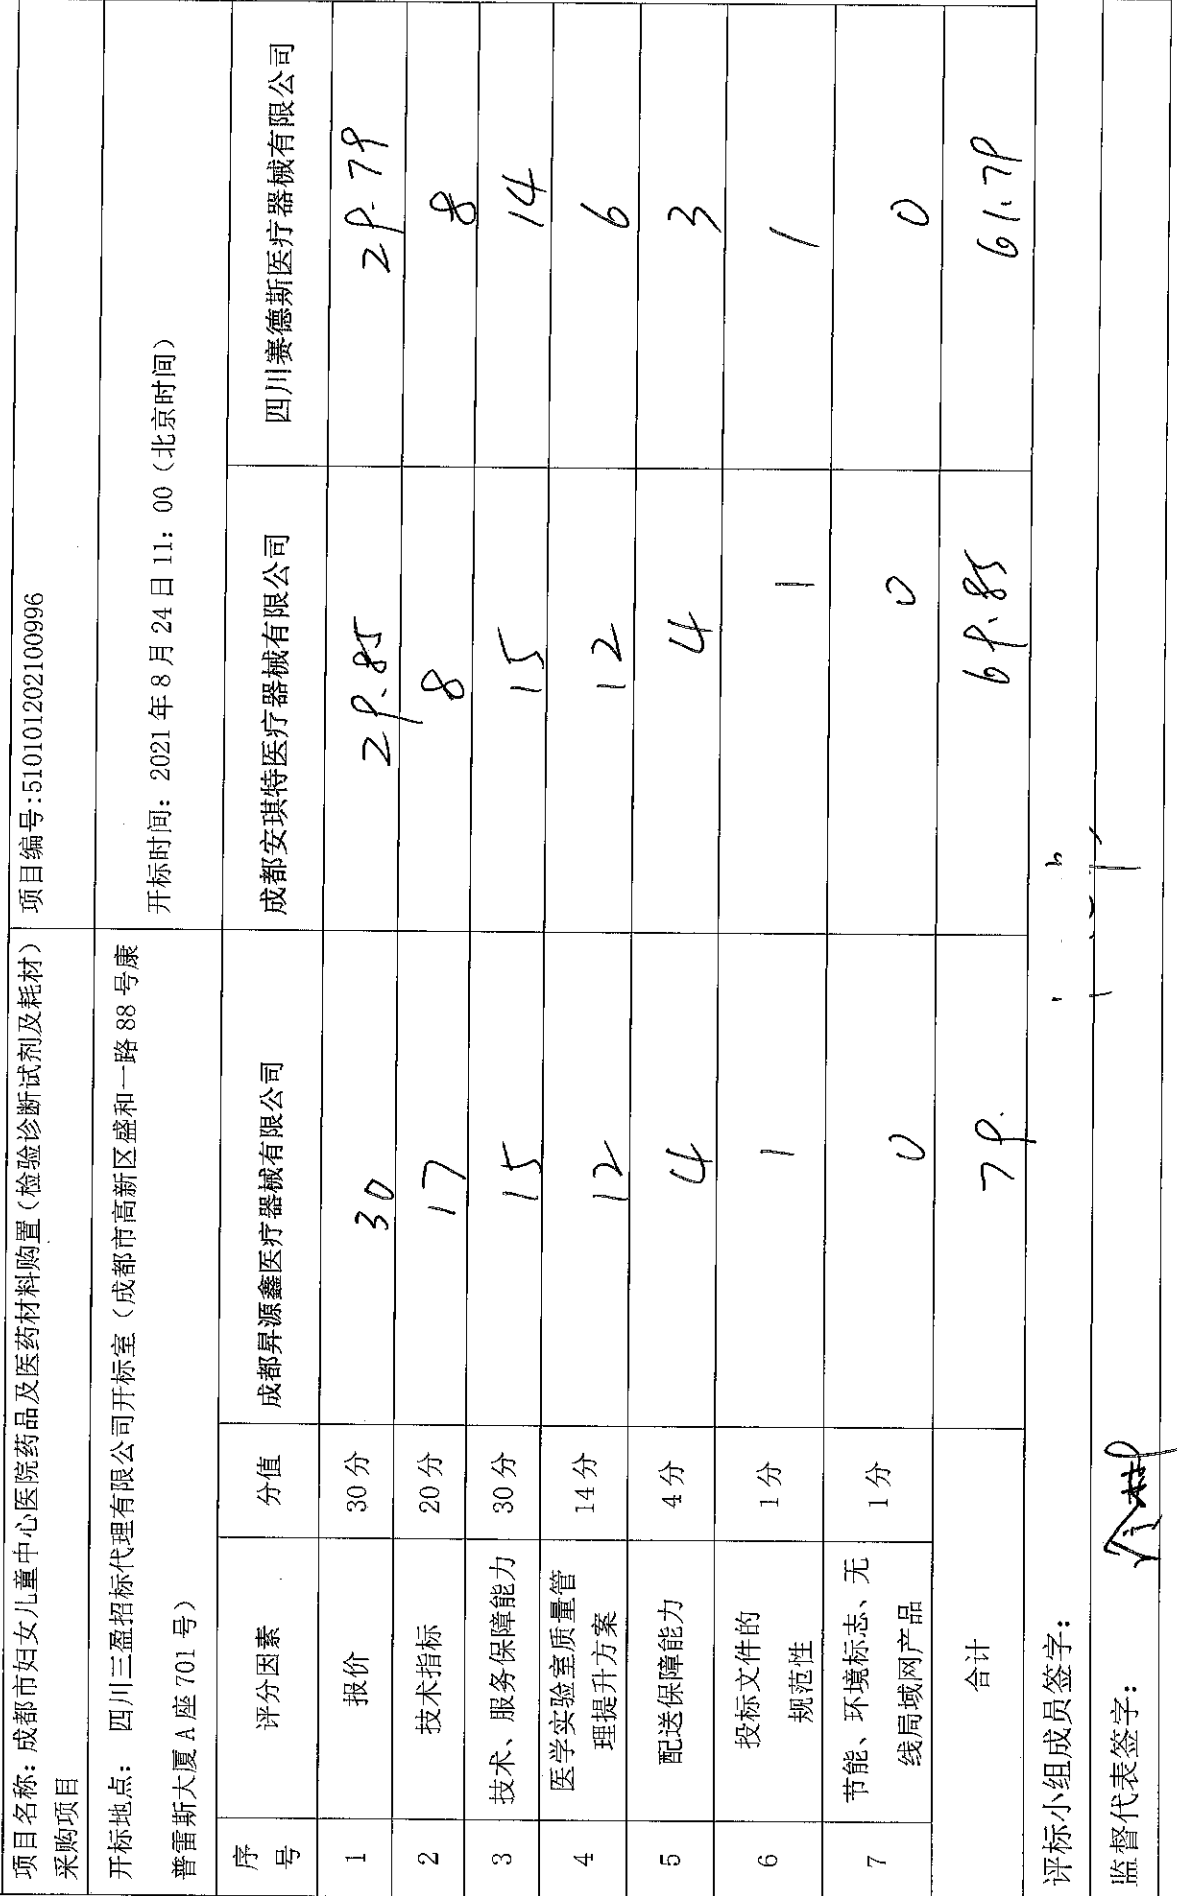 项目名称：成都市妇女儿童中心医院药品及医药材料购置（检验诊断试剂及耗材）
采购项目
项目编号:510101202100996
开标地点： 四川三盈招标代理有限公司开标室（成都市高新区盛和一路 88 号康
普雷斯大厦 A 座 701 号）
开标时间：2021 年 8 月 24 日 11：00（北京时间）
序号 评分因素 分值 成都昇源鑫医疗器械有限公司 成都安琪特医疗器械有限公司 四川赛德斯医疗器械有限公司
1 报价 30 分 30 29.85 29.79
2 技术指标 20 分 17 8 8
3 技术、服务保障能力 30 分 15 15 14
4 医学实验室质量管
理提升方案 14 分 12 12 6
5 配送保障能力 4 分 4 4 3
6 投标文件的
规范性 1 分 1 1 1
7 节能、环境标志、无
线局域网产品 1 分 0 0 0
合计 79. 69.85 61.79
评标小组成员签字：
监督代表签字：